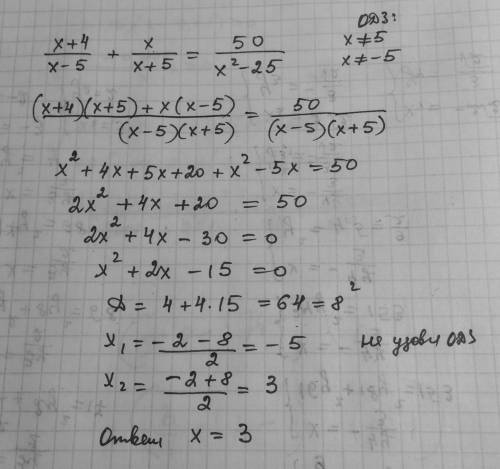 ОДЗ:
x+4/x-5 + x/x+5 = 50/x²-25 x≠5
x≠-5
(x+4)(x+5)+x(x-5)/(x-5)(x+5) = 50/(x-5)(x+5)
x²+4x+5x+20+x²-5x=50
2x²+4x+20 = 50
2x²+4x-30=0
x²+2x-15=0
Д= 4+4·15 =64=8²
x₁= -2-8/2 = -5 не удовл ОДЗ
x₂= -2+8/2 = 3
Ответ x=3